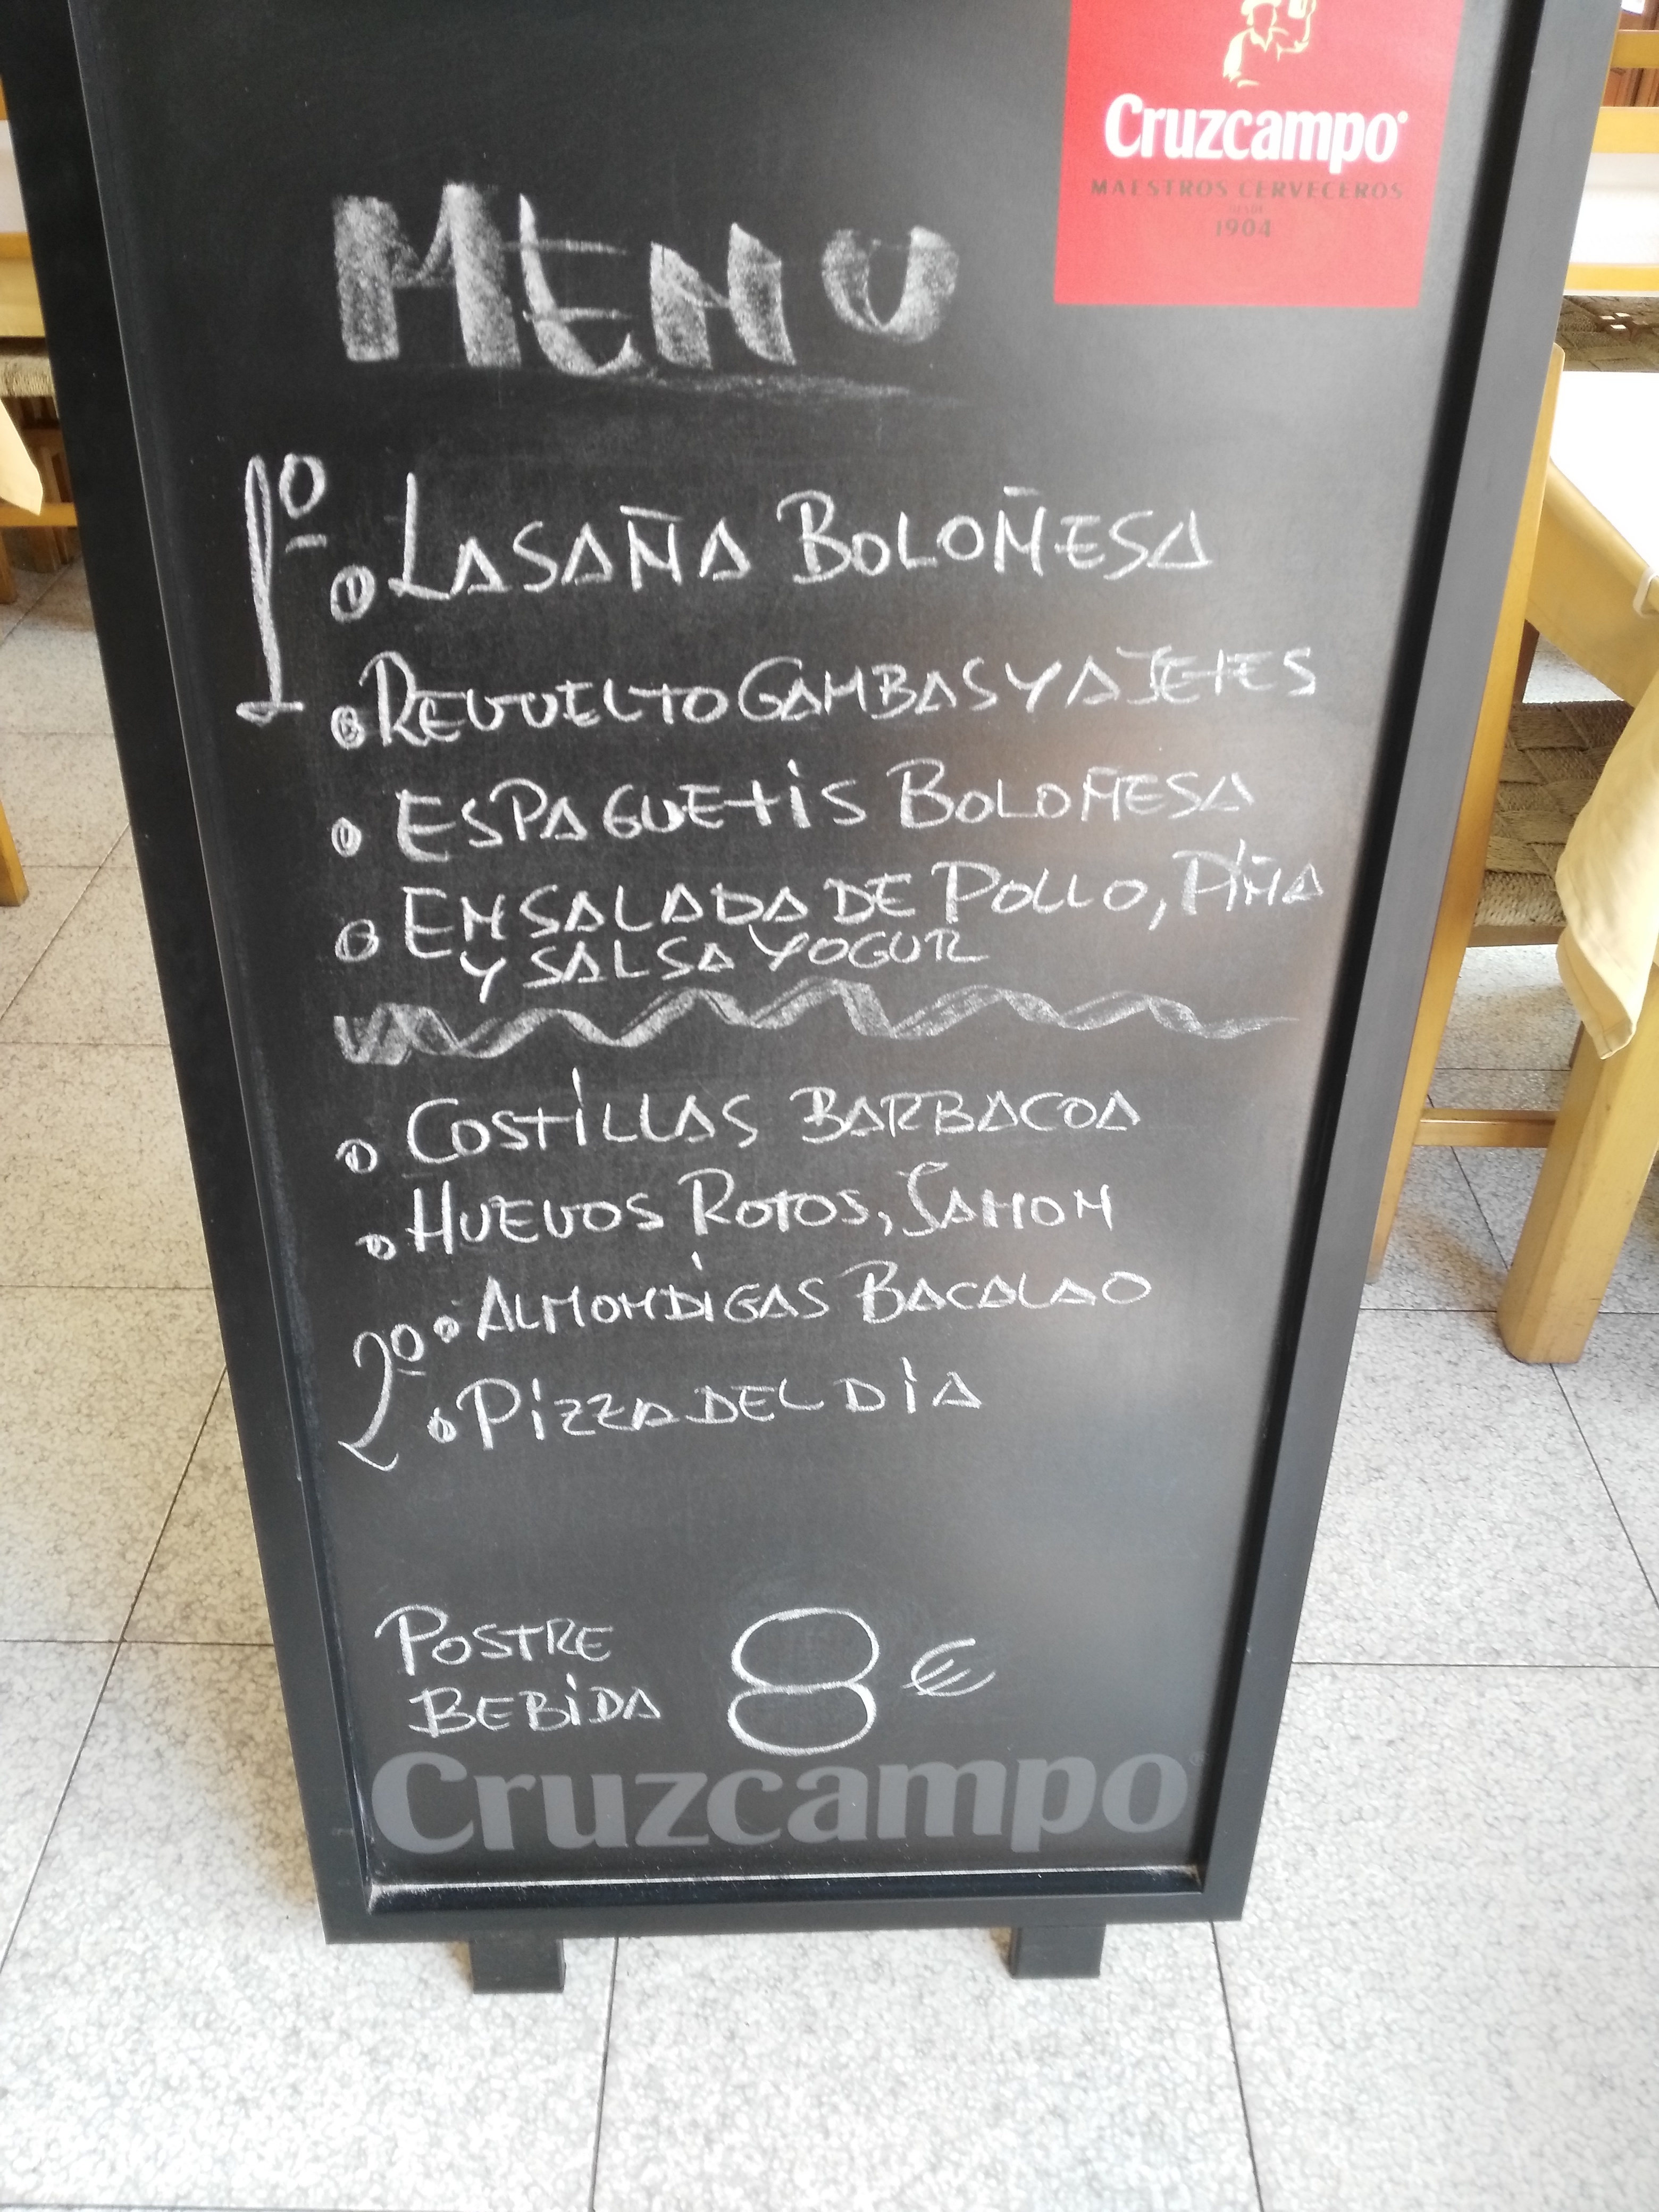 Cruzcampo
MAESTROS CERVECEROS
DESDE
1904
MENU
1º
LASAÑA BOLOÑESA
REVUELTO GAMBAS Y AJETES
ESPAGUETIS BOLOÑESA
ENSALADA DE POLLO, PIÑA
Y SALSA YOGUR
COSTILLAS BARBACOA
HUEVOS ROTOS, JAMON
2º
ALMONDIGAS BACALAO
PIZZA DEL DIA
POSTRE
BEBIDA
8 €
Cruzcampo